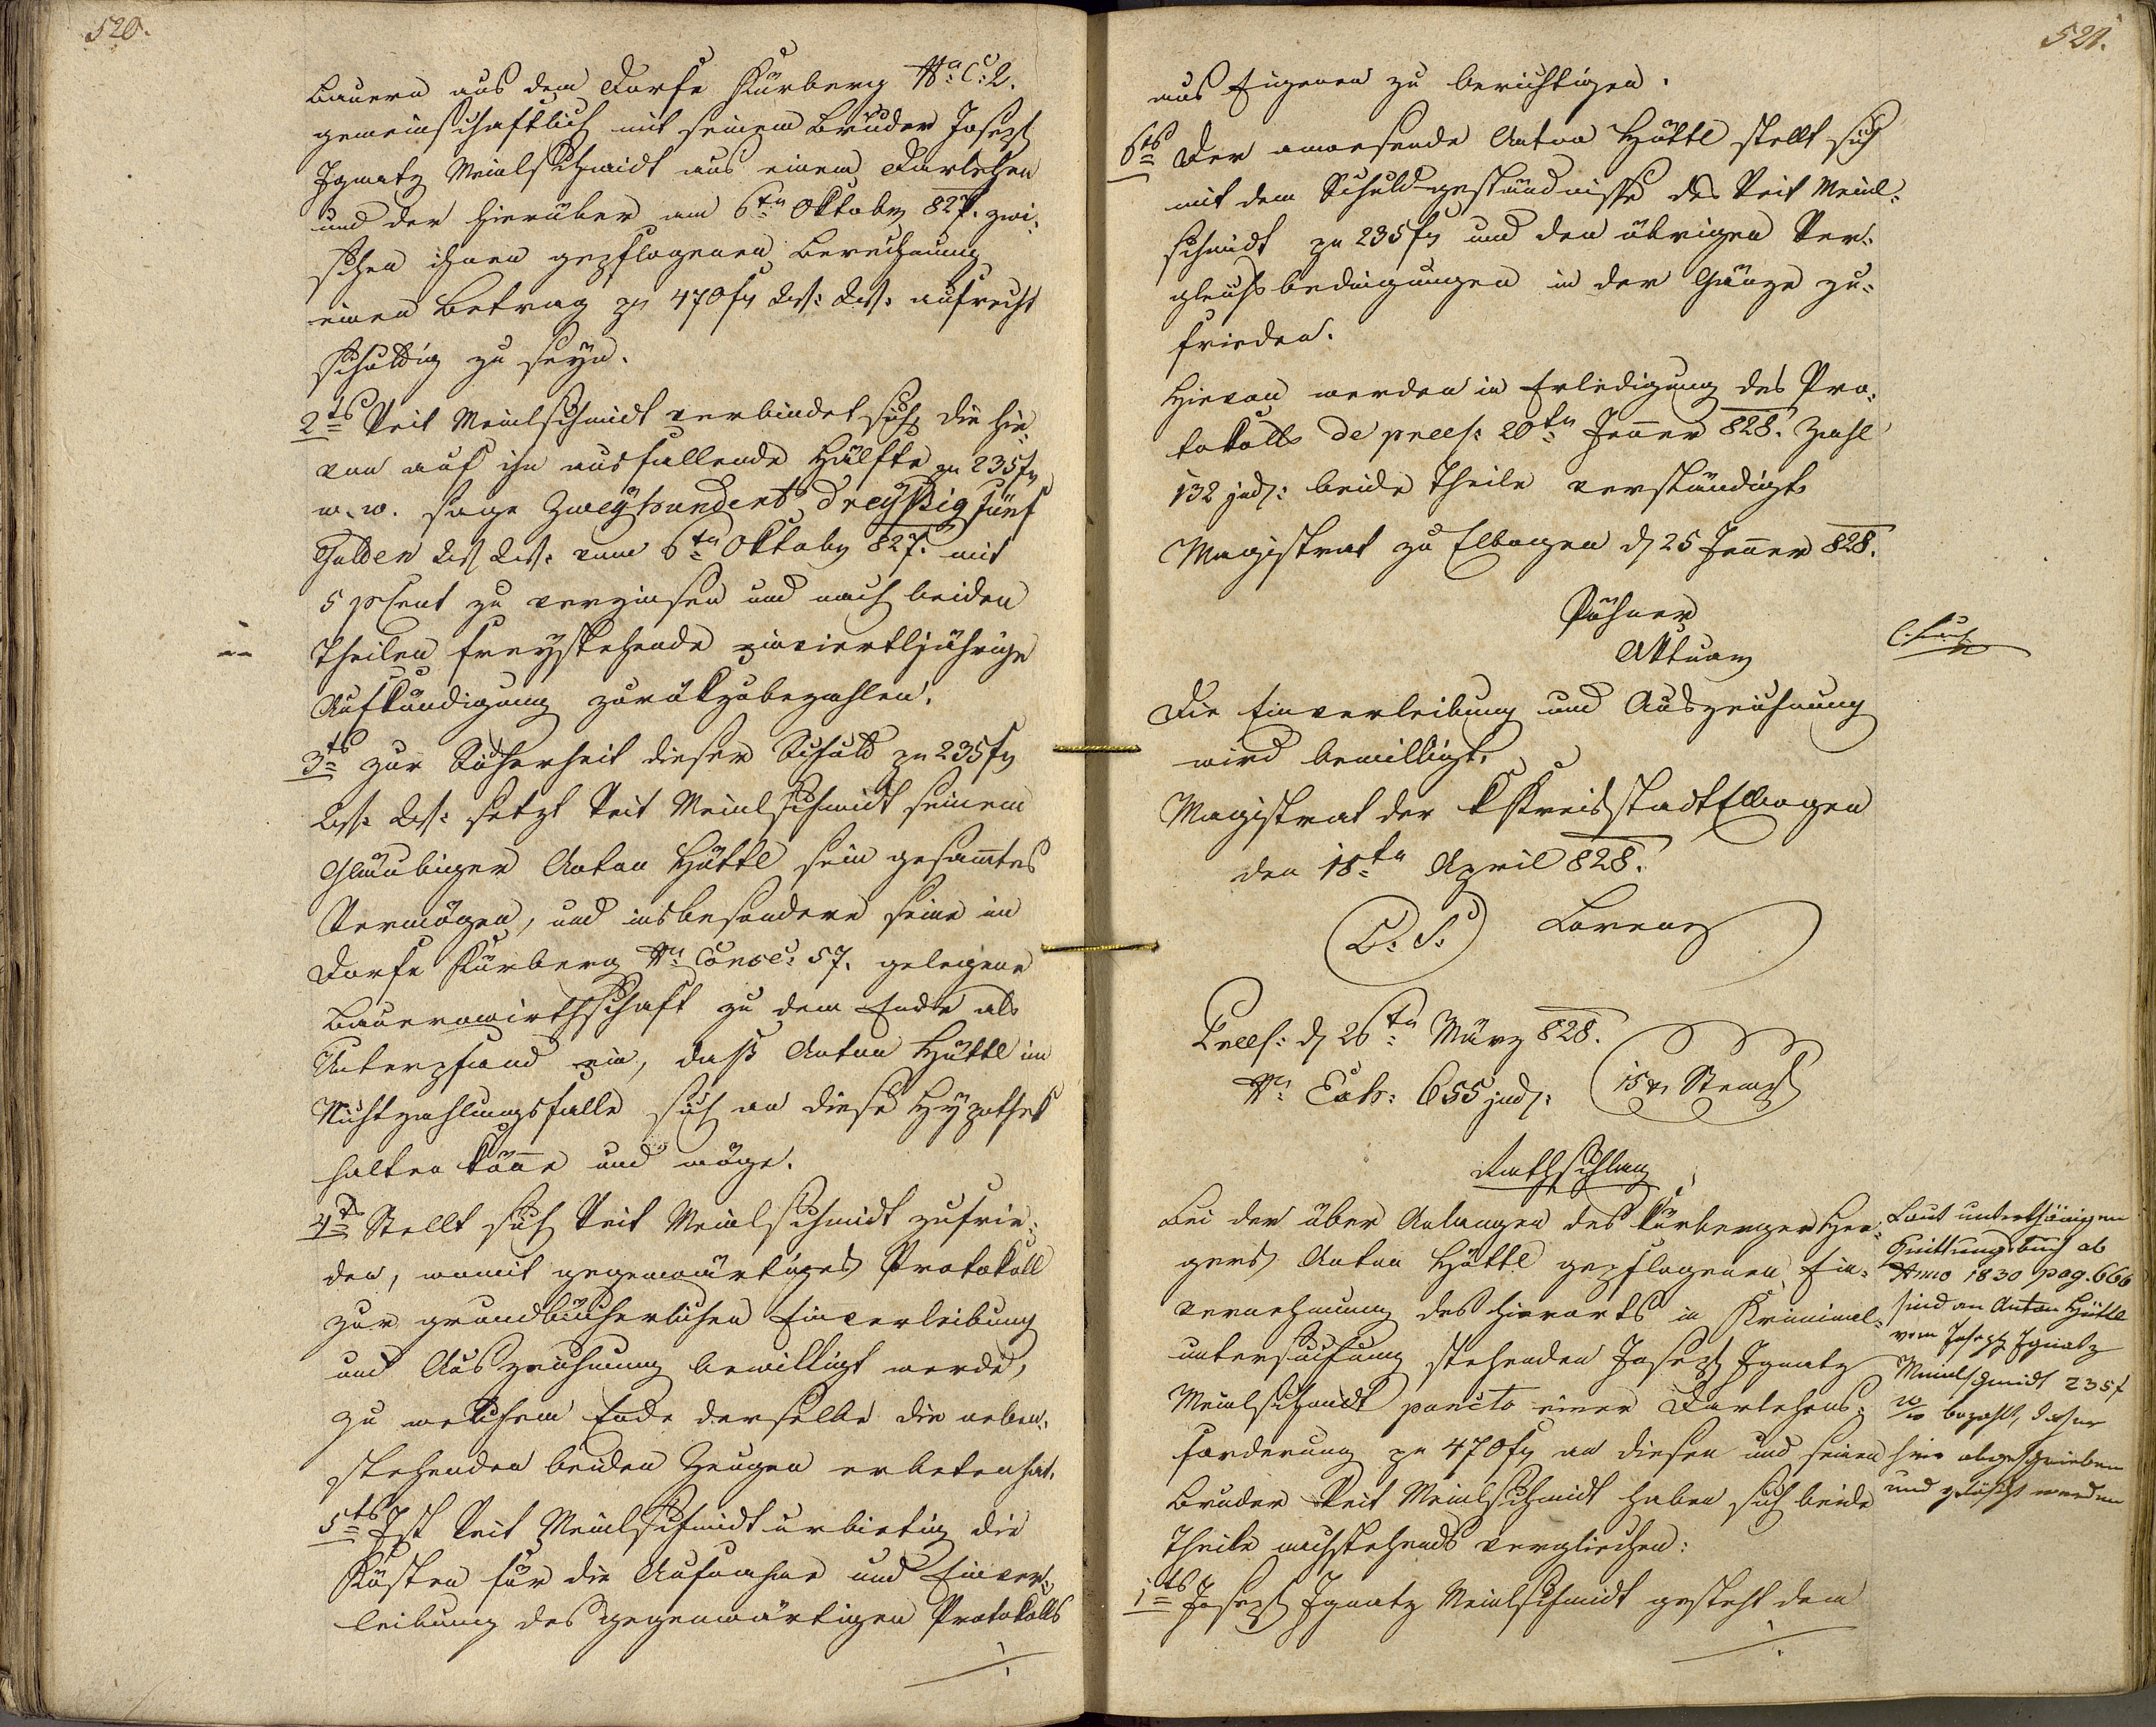 520.
Bauern aus dem Dorfe Kürberg Nro C: 2.
gemeinschaftlich mit seinem Bruder Joseph
Ignatz Meinlschmidt aus einem Darlehen
und der hierüber am 6ten Oktober 827. zwi-
schen ihnen gepflogenen Berechnung
einen Betrag pr 470 fr W: W: aufrecht
schuldig zu seyn.
2ts Veit Meinlschmidt verbindet sich die hie-
von auf ihn ausfallende Hälfte pr 235 fr
w. w. sage Zweyhundert dreyßig fünf
Gulden W W: vom 6ten Oktober 827. mit
5 pCent zu verzinsen und nach beiden
Theilen freystehende einviertljährige
Aufkündigung zurükzubezahlen.
3ts zur Sicherheit dieser Schuld pr 235 fr
W: W: setzt Veit Meinlschmidt seinem
Gläubiger Anton Hüttl sein gesamtes
Vermögen, und insbesondere seine im
Dorfe Kürberg Nro Consc: 57. gelegene
Bauernwirthschaft zu dem Ende als
Unterpfand ein, daß Anton Hüttl im
Nichtzahlungsfalle sich an diese Hypothek
halten könne und möge.
4ts Stellt sich Veit Meinlschmidt zufrie-
den, womit gegenwärtiges Protokoll
zur grundbücherlichen Einverleibung
und Auszeichnung bewilligt werde,
zu welchem Ende derselbe die neben-
stehenden beiden Zeugen erbeten hat.
5ts Ist Veit Meinlschmidt urbietig die
Kösten für die Aufnahme und Einver-
leibung des gegenwärtigen Protokolls
521.
aus Eigenen zu berichtigen.
6ts Der anwesende Anton Hüttl stellt sich
mit dem Schuldgeständnisse des Veit Meinl-
schmidt pr 235 fr und den übrigen Ver-
gleichsbedingungen in der Gänze zu-
frieden.
Hievon werden in Erledigung des Pro-
tokolls de praes: 20ten Jenner 828. Zahl
132 jud: beide Theile verständigt.
Magistrat zu Elbogen d 25 Jenner 828.
Aktuar
Die Einverleibung und Auszeichnung
wird bewilligt.
Magistrat der k Kreisstadt Elbogen
den 18ten April 828.
(L: S:) Lorenz
Praes: d 26ten März 828.
Nro Exh: 655 jud: 15 xr Stempl
Rathschlag
Bei der über Anlangen des Kürberger Hee-
gers Anton Hüttl gepflogenen Ein-
vernehmung des hierorts in Kriminal-
untersuchung stehenden Joseph Ignatz
Meinlschmidt puncto einer Darlehens-
forderung pr 470 fr an diesen und seinen
Bruder Veit Meinlschmidt haben sich beide
Theile nachstehends verglichen:
1ts Joseph Ignatz Meinlschmidt gesteht dem
Laut unterthänigen
Quittungsbuch ab
Anno 1830 pag. 666
sind an Anton Hüttl
vom Joseph Ignatz
Meinlschmidt 235 f
w w bezahlt, daher
hier abgeschrieben
und gelöscht werden